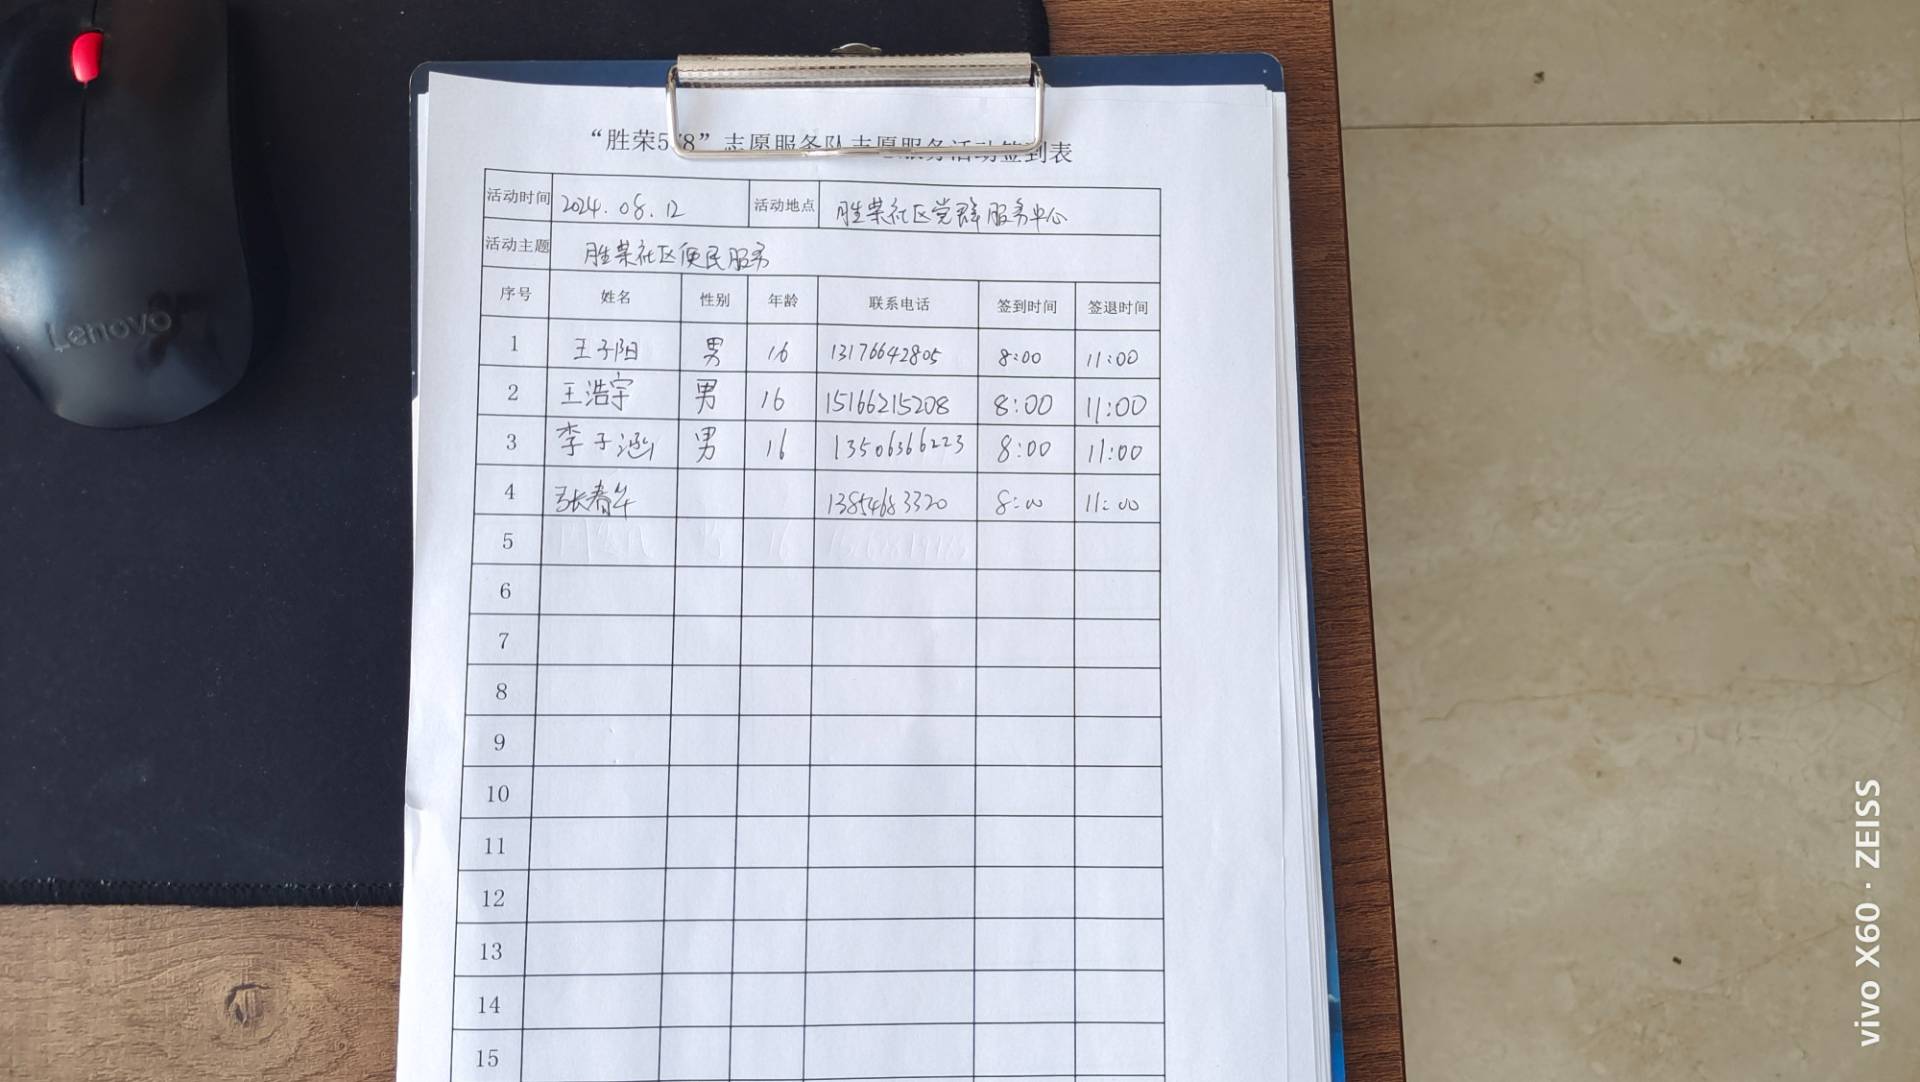 “胜荣5 8”志愿服务队志愿服务活动签到表
活动时间 2024.08.12 活动地点 胜荣社区党群服务中心
活动主题 胜荣社区便民服务
序号 姓名 性别 年龄 联系电话 签到时间 签退时间
1 王子阳 男 16 13176642805 8:00 11:00
2 王浩宇 男 16 15166215208 8:00 11:00
3 李子涵 男 16 13506366223 8:00 11:00
4 张春华 13854683320 8:00 11:00
5
6
7
8
9
10
11
12
13
14
15
Lenovo
vivo X60 · ZEISS